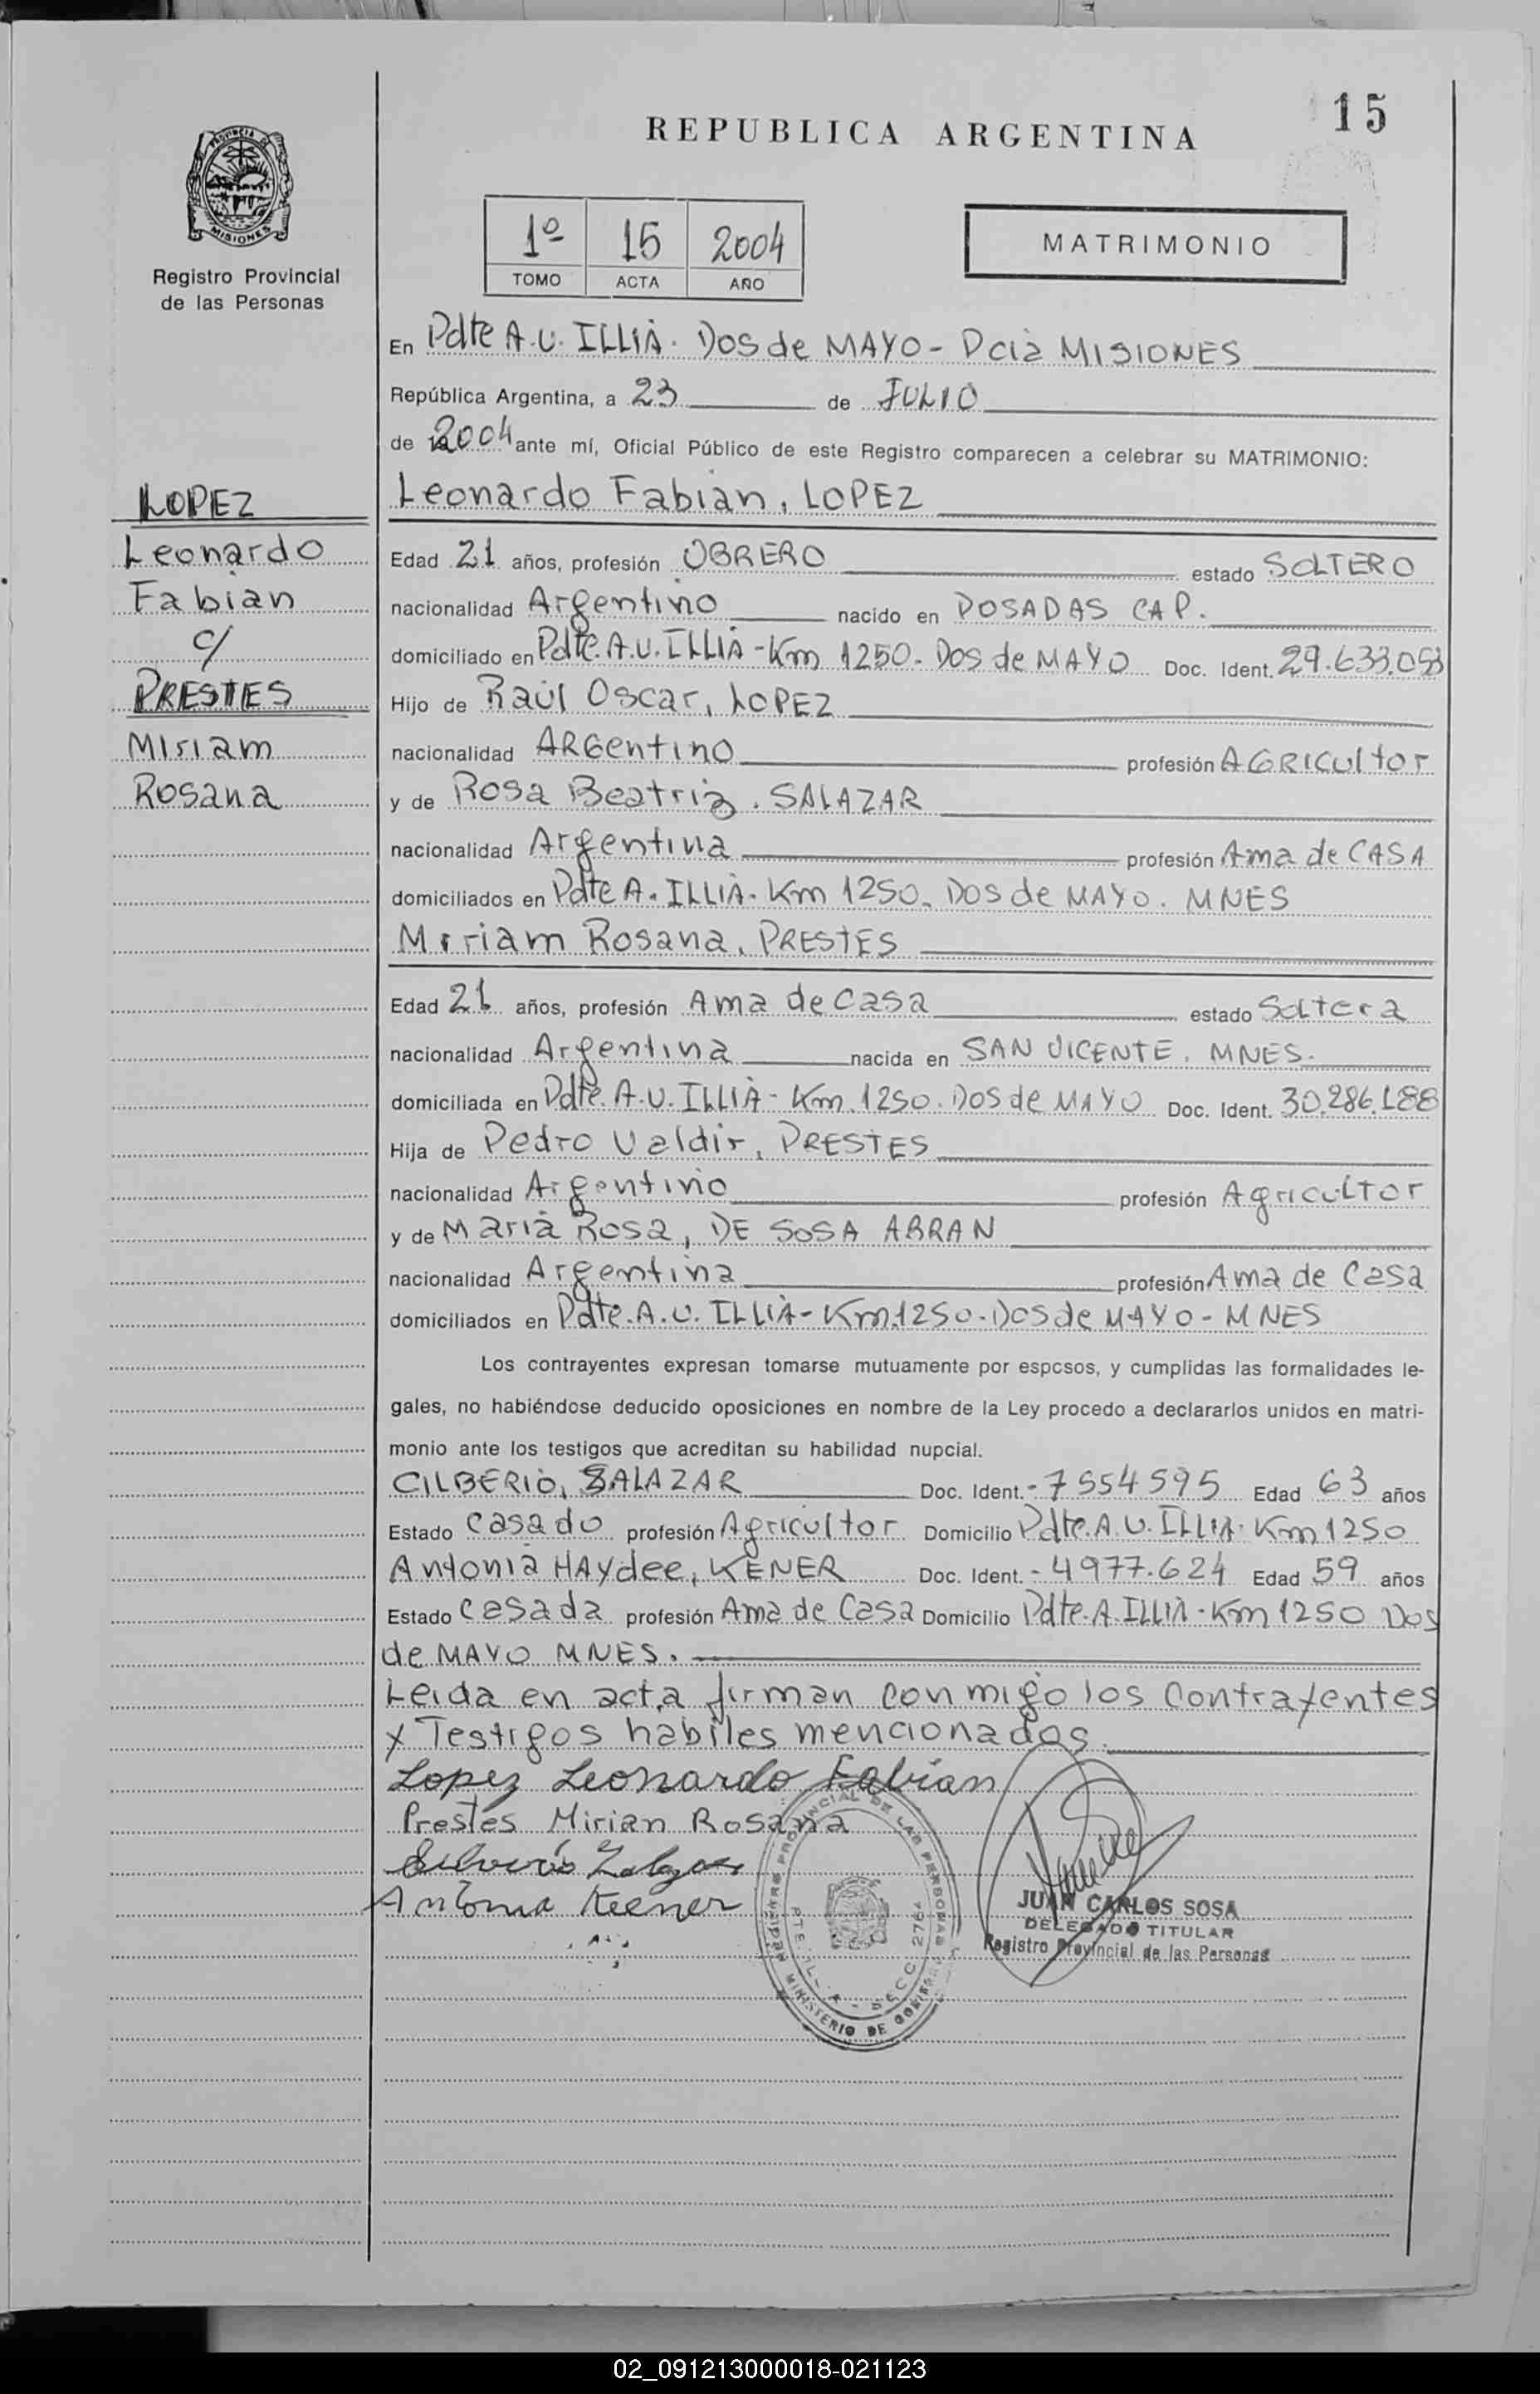 15
REPUBLICA ARGENTINA
PROVINCIA
MISIONES
Registro Provincial
de las Personas
1º 15 2004
TOMO ACTA AÑO
MATRIMONIO
En Pdte A.U. ILLIA. Dos de MAYO - Pcia MISIONES
República Argentina, a 23 de JULIO
de 2004 ante mí, Oficial Público de este Registro comparecen a celebrar su MATRIMONIO:
LOPEZ
Leonardo
Fabian
c/
PRESTES
Miriam
Rosana
Leonardo Fabian, LOPEZ
Edad 21 años, profesión OBRERO estado SOLTERO
nacionalidad Argentino nacido en POSADAS CAP.
domiciliado en Pdte. A.U. ILLIA - Km 1250. Dos de MAYO Doc. Ident. 29.633.053
Hijo de Raúl Oscar, LOPEZ
nacionalidad ARGentino profesión AGRICultor
y de Rosa Beatriz, SALAZAR
nacionalidad Argentina profesión Ama de CASA
domiciliados en Pdte A. ILLIA. Km 1250. Dos de MAYO. MNES
Miriam Rosana, PRESTES
Edad 21 años, profesión Ama de Casa estado Soltera
nacionalidad Argentina nacida en SAN VICENTE. MNES.
domiciliada en Pdte. A.U. ILLIA - Km. 1250. Dos de MAYO Doc. Ident. 30.286.188
Hija de Pedro Valdir, PRESTES
nacionalidad Argentino profesión Agricultor
y de Maria Rosa, DE SOSA ABRAN
nacionalidad Argentina profesión Ama de Casa
domiciliados en Pdte. A.U. ILLIA - Km.1250. Dos de MAYO - MNES
Los contrayentes expresan tomarse mutuamente por esposos, y cumplidas las formalidades le-
gales, no habiéndose deducido oposiciones en nombre de la Ley procedo a declararlos unidos en matri-
monio ante los testigos que acreditan su habilidad nupcial.
CILBERIO, SALAZAR Doc. Ident. - 7554595 Edad 63 años
Estado Casado profesión Agricultor Domicilio Pdte. A.U. ILLIA. Km 1250
Antonia HAydee, KENER Doc. Ident. - 4977.624 Edad 59 años
Estado Casada profesión Ama de Casa Domicilio Pdte. A. ILLIA - Km 1250 Dos
de MAYO MNES.
Leida en acta firman conmigo los Contrayentes
y Testigos habiles mencionados.
Lopez Leonardo Fabian
Prestes Mirian Rosana
Antonia Keener
REGISTRO PROVINCIAL DE LAS PERSONAS
MINISTERIO DE GOBIERNO
JUAN CARLOS SOSA
DELEGADO TITULAR
Registro Provincial de las Personas
02_091213000018-021123